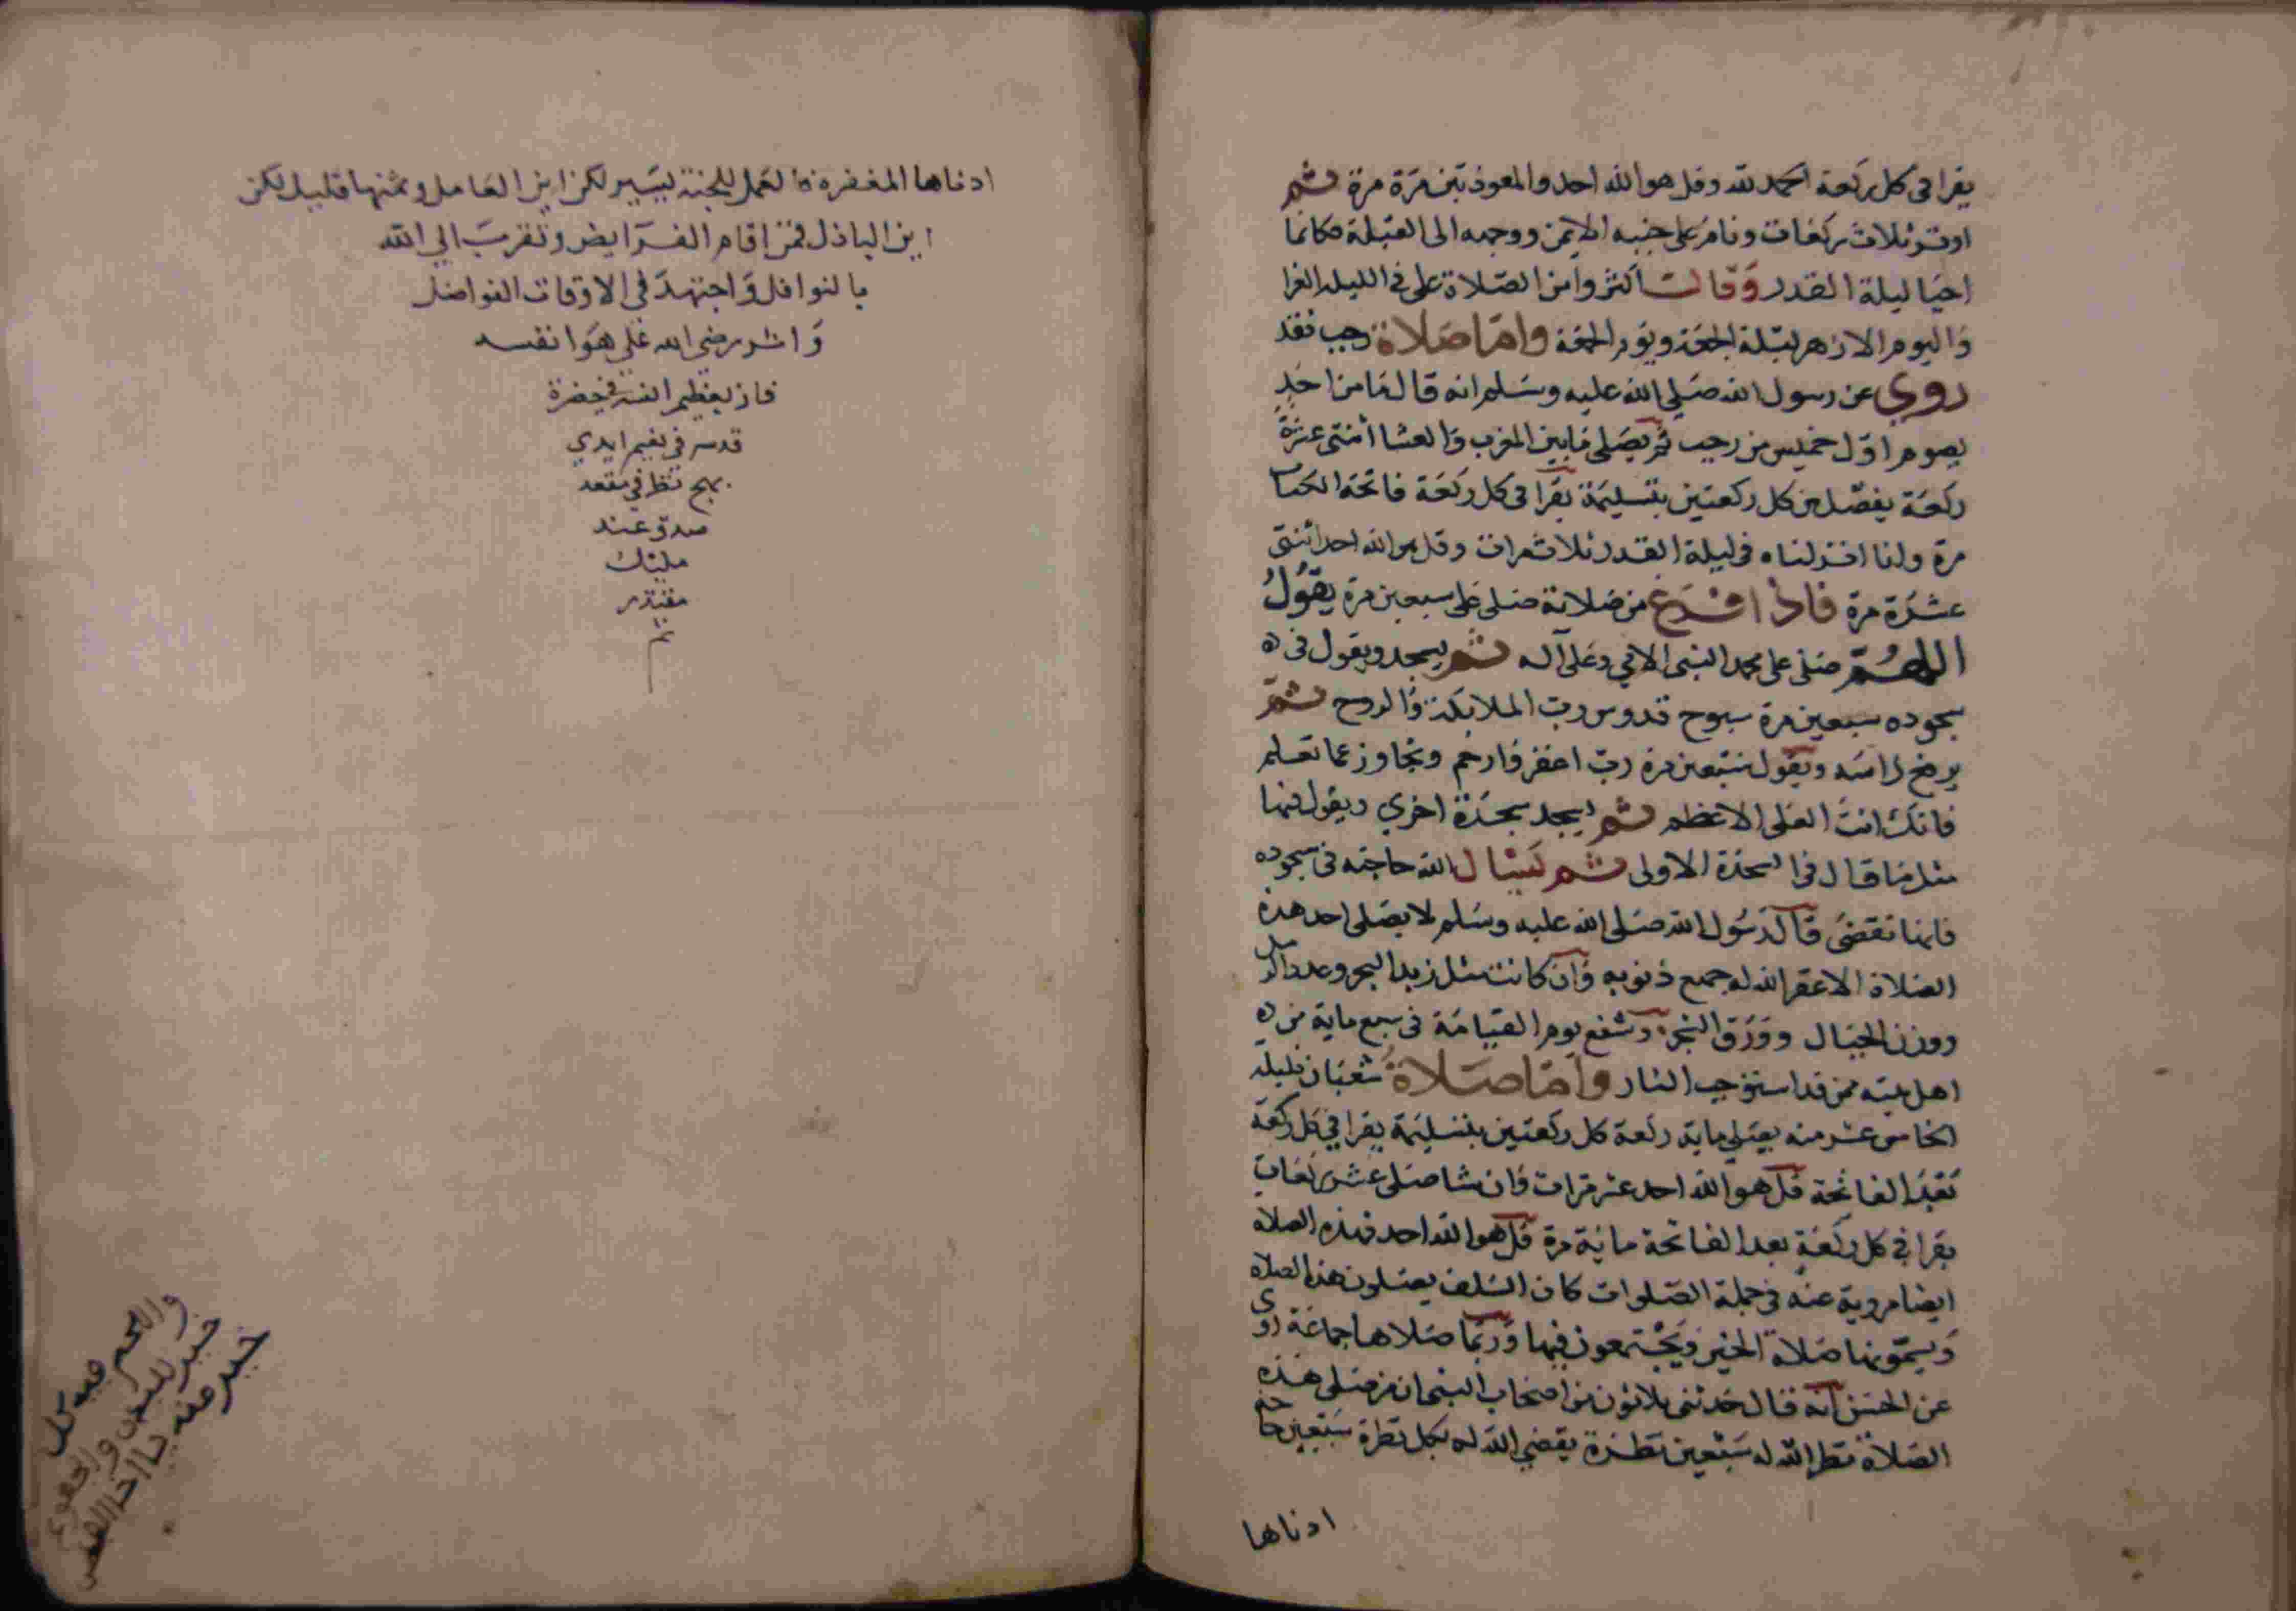 يقرا فى كل ركعة الحمد لله وقل هو الله احد والمعوذتين مرة مرة ثم
اوتر بثلاث ركعات ونام على جنبه الايمن ووجهه الى القبلة فكانما
احيا ليلة القدر وقالت اكثروا من الصلاة على فى الليلة الغرا
واليوم الازهر ليلة الجمعة ويوم الجمعة واما صلاة رجب فقد
روي عن رسول الله صلى الله عليه وسلم انه قال ما من احد
يصوم اول خميس من رجب ثم يصلى فيما بين المغرب والعشا اثنتى عشرة
ركعة يفصل بين كل ركعتين بتسليمة يقرا فى كل ركعة فاتحة الكتاب
مرة وانا انزلناه فى ليلة القدر ثلاث مرات وقل هو الله احد اثنتى
عشرة مرة فاذا افرغ من صلاته صلى على سبعين مرة يقول
اللهم صلى على محمد النبى الامي وعلى آله ثم يسجد ويقول فى
سجوده سبعين مرة سبوح قدوس رب الملايكة والروح ثم
يرفع راسه ويقول سبعين مرة رب اغفر وارحم وتجاوز عما تعلم
فانك انت العلى الاعظم ثم يسجد سجدة اخري ويقول فيها
مثل ما قال فى السجدة الاولى ثم يسال الله حاجته فى سجوده
فانها تقضى قال رسول الله صلى الله عليه وسلم لا يصلى احد هذه
الصلاة الا غفر الله له جميع ذنوبه وان كانت مثل زبد البحر وعدد الرمل
ووزن الجبال وورق الشجر ويشفع يوم القيامة فى سبع ماية من
اهل بيته ممن قد استوجب النار واما صلاة شعبان فليلة
الخامس عشر منه يصلي ماية ركعة كل ركعتين بتسليمة يقرا في كل ركعة
بعد الفاتحة قل هو الله احد عشر مرات وان شا صلى عشر ركعات
يقرا في كل ركعة بعد الفاتحة ماية مرة قل هو الله احد فهذه الصلاة
ايضا مروية عنه فى جملة الصلوات كان السلف يصلون هذه الصلاة
ويسمونها صلاة الخير ويجتمعون فيها وربما صلاها جماعة روى
عن الحسن انه قال حدثنى ثلاثون من اصحاب النبى ان من صلى هذه
الصلاة نظر الله له سبعين نظرة يقضي الله له بكل نظرة سبعين حاجة
ادناها
ادناها المغفرة فالعمل للجنة ليسير لكن اين العامل وثمنها قليل لكن
اين الباذل فمن اقام الفرايض وتقرب الى الله
بالنوافل واجتهد فى الاوقات الفواضل
واثر رضى الله على هوا نفسه
فاز بعظيم انسه فى حضرة
قدسه فى نعيم ابدي
نظر في مقعد
صدق عند
مليك
مقتدر
تم